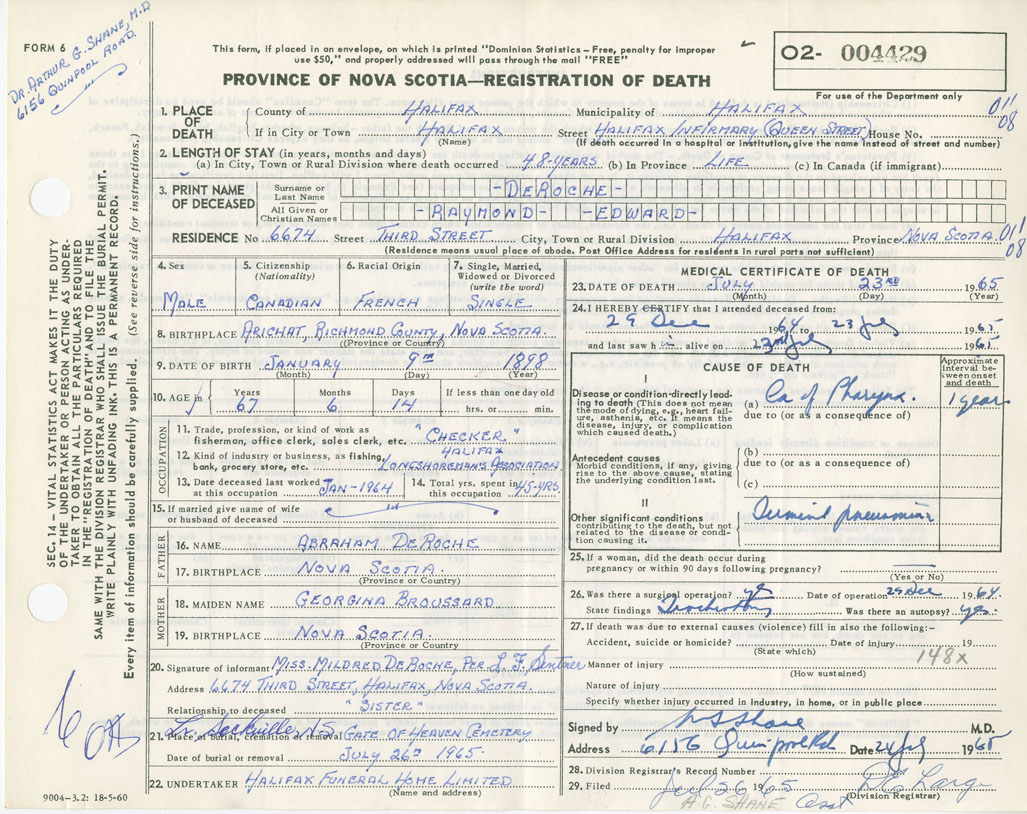 FORM 6
DR. ARTHUR G. SHANE, M.D
6156 QUINPOOL ROAD.
This form, if placed in an envelope, on which is printed "Dominion Statistics – Free, penalty for improper
use $50," and properly addressed will pass through the mail "FREE"
PROVINCE OF NOVA SCOTIA—REGISTRATION OF DEATH
O2- 004429
For use of the Department only
1. PLACE OF DEATH County of HALIFAX Municipality of HALIFAX 011/08
If in City or Town HALIFAX Street HALIFAX INFIRMARY (QUEEN STREET) House No.
(Name) (If death occurred in a hospital or institution, give the name instead of street and number)
2. LENGTH OF STAY (in years, months and days)
(a) In City, Town or Rural Division where death occurred 48-YEARS (b) In Province LIFE (c) In Canada (if immigrant)
3. PRINT NAME OF DECEASED Surname or Last Name -DEROCHE-
All Given or Christian Names -RAYMOND- -EDWARD-
RESIDENCE No 6674 Street THIRD STREET City, Town or Rural Division HALIFAX Province NOVA SCOTIA. 011/08
(Residence means usual place of abode. Post Office Address for residents in rural parts not sufficient)
SEC. 14 – VITAL STATISTICS ACT MAKES IT THE DUTY
OF THE UNDERTAKER OR PERSON ACTING AS UNDER-
TAKER TO OBTAIN ALL THE PARTICULARS REQUIRED
IN THE "REGISTRATION OF DEATH" AND TO FILE THE
SAME WITH THE DIVISION REGISTRAR WHO SHALL ISSUE THE BURIAL PERMIT.
WRITE PLAINLY WITH UNFADING INK. THIS IS A PERMANENT RECORD.
Every item of information should be carefully supplied. (See reverse side for instructions.)
4. Sex 5. Citizenship (Nationality) 6. Racial Origin 7. Single, Married, Widowed or Divorced (write the word)
MALE CANADIAN FRENCH SINGLE
8. BIRTHPLACE ARICHAT, RICHMOND COUNTY, NOVA SCOTIA.
(Province or Country)
9. DATE OF BIRTH JANUARY 9TH 1898
(Month) (Day) (Year)
10. AGE in Years Months Days If less than one day old
67 6 14 hrs. or min.
OCCUPATION
11. Trade, profession, or kind of work as
fisherman, office clerk, sales clerk, etc. "CHECKER"
12. Kind of industry or business, as fishing,
bank, grocery store, etc. HALIFAX LONGSHOREMAN'S ASSOCIATION
13. Date deceased last worked at this occupation JAN-1964 14. Total yrs. spent in this occupation 45-YRS.
15. If married give name of wife
or husband of deceased
FATHER
16. NAME ABRAHAM DEROCHE
17. BIRTHPLACE NOVA SCOTIA
(Province or Country)
MOTHER
18. MAIDEN NAME GEORGINA BROUSSARD
19. BIRTHPLACE NOVA SCOTIA.
(Province or Country)
20. Signature of informant MISS. MILDRED DEROCHE, PER
Address 6674 THIRD STREET, HALIFAX, NOVA SCOTIA.
Relationship to deceased "SISTER"
21. Place of burial, cremation or removal Lr. Sackville, N.S. GATE OF HEAVEN CEMETERY
Date of burial or removal JULY 26TH 1965
22. UNDERTAKER HALIFAX FUNERAL HOME LIMITED
(Name and address)
9004-3.2: 18-5-60
MEDICAL CERTIFICATE OF DEATH
23. DATE OF DEATH JULY 23RD 1965
(Month) (Day) (Year)
24. I HEREBY CERTIFY that I attended deceased from:
29 Dec 1964 to 23 July 1965
and last saw him alive on 23rd July 1965
CAUSE OF DEATH
Approximate interval between onset and death
I
Disease or condition directly lead-
ing to death (This does not mean
the mode of dying, e.g., heart fail-
ure, asthenia, etc. It means the
disease, injury, or complication
which caused death.)
(a) Ca of Pharynx. 1 years
due to (or as a consequence of)
Antecedent causes
Morbid conditions, if any, giving
rise to the above cause, stating
the underlying condition last.
(b)
due to (or as a consequence of)
(c)
II
Other significant conditions
contributing to the death, but not
related to the disease or condi-
tion causing it.
pneumonia
25. If a woman, did the death occur during
pregnancy or within 90 days following pregnancy?
(Yes or No)
26. Was there a surgical operation? yes Date of operation 29 Dec 1964.
State findings Was there an autopsy? yes.
27. If death was due to external causes (violence) fill in also the following:–
Accident, suicide or homicide? Date of injury 19
(State which) 148x
Manner of injury
(How sustained)
Nature of injury
Specify whether injury occurred in industry, home, or in public place
Signed by Shane M.D.
Address 6156 Quinpool Rd Date 24 July 1965
28. Division Registrar's Record Number
29. Filed Jul 26 1965
(Division Registrar)
A.G. SHANE Asst